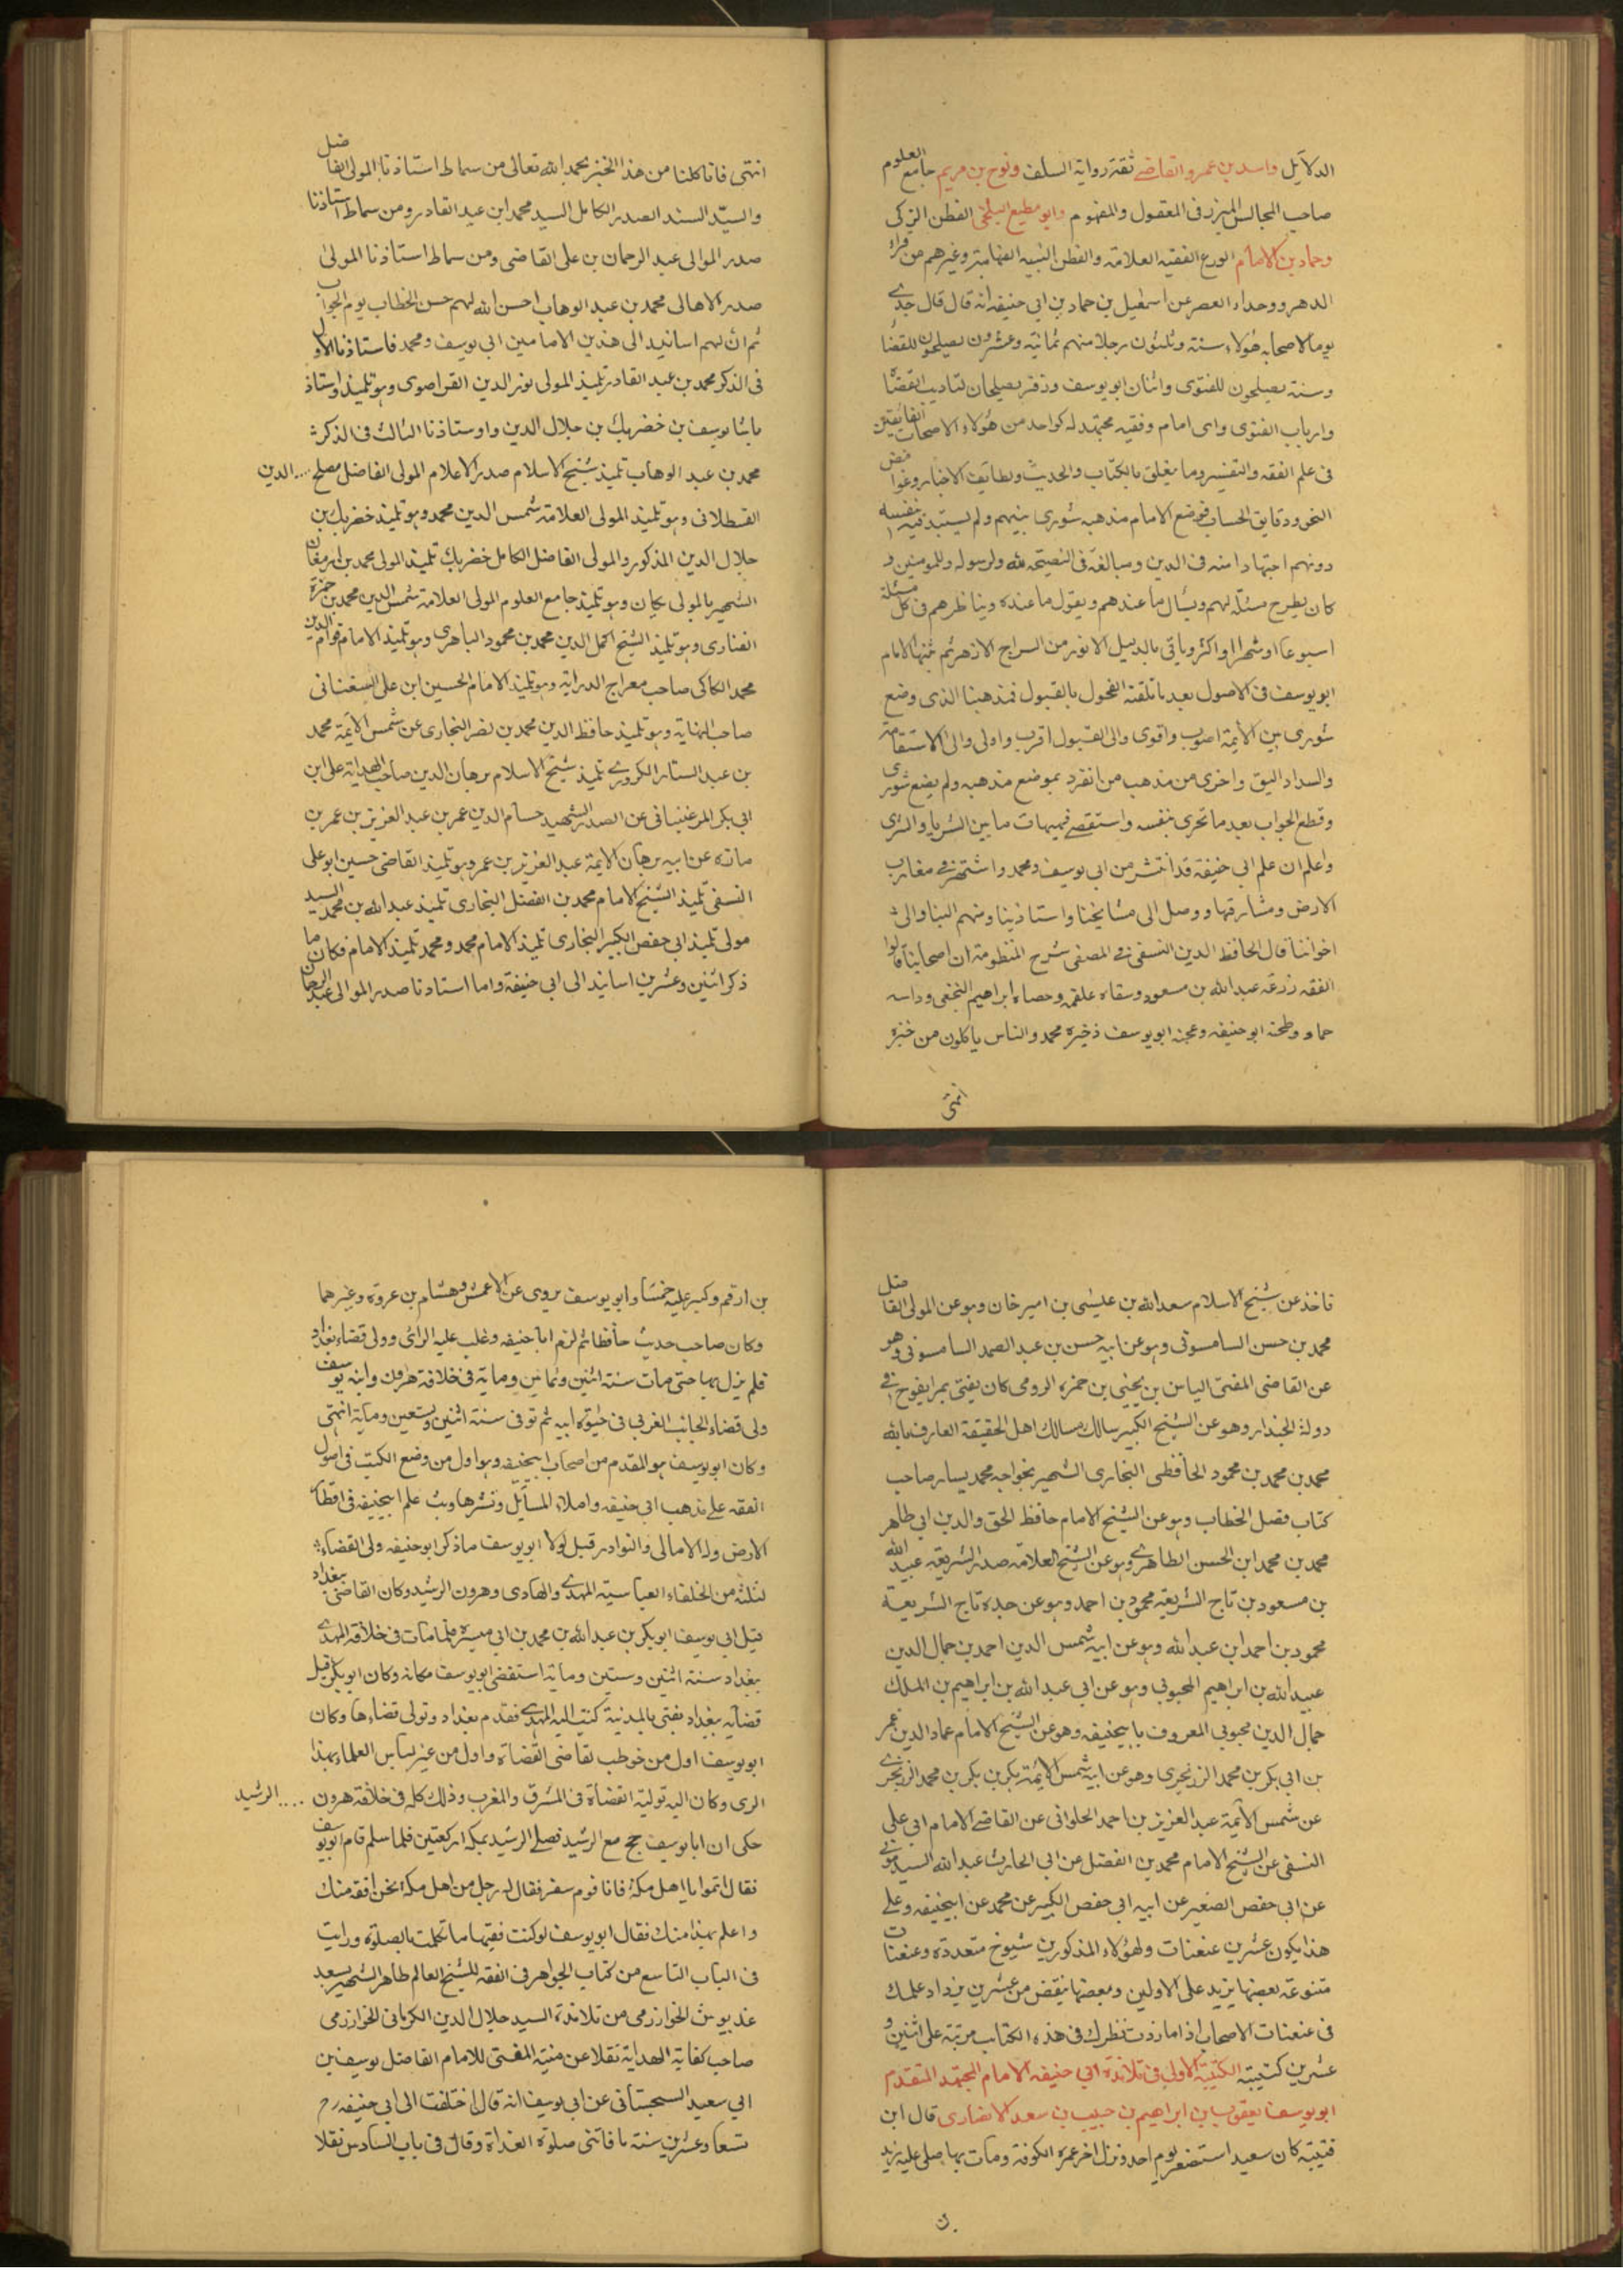 الدلايل واسد بن عمرو القاضے ثقة رواية السلف ونوح بن مريم جامع العلوم
صاحب المجالس المبرز فى المعقول والمفهوم وابو مطيع البلخى الفطن الزكى
وحماد بن الامام الورع الفقيه العلامة والفطن النبيه الفهامة وغيرهم من قراء
الدهر ووحداء العصر عن اسمعيل بن حماد بن ابي حنيفه انه قال قال جدے
يوما لاصحابه هؤلاء ستة وثلثون رجلا منهم ثمانية وعشرون يصلحون للقضا
وستة يصلحون للفتوى واثنان ابو يوسف وزفر يصلحان لتاديب القضا
وارباب الفتوى واى امام وفقيه مجتهد له كواحد من هؤلاء الاصحاب الفايقين
فى علم الفقه والتفسير وما يتعلق بالكتاب والحديث ولطايف الاخبار وغوامض
النحو ودقايق الحساب فوضع الامام مذهبه شورى بينهم ولم يستبد فيه بنفسه
دونهم اجتهادا منه فى الدين ومبالغة فى النصيحة لله ولرسوله وللمومنين و
كان يطرح مسئلة لهم ويسال ما عندهم ويقول ما عنده ويناظرهم فى كل مسئلة
اسبوعا او شهرا او اكثر وياتى بالدليل الانور من السراج الازهر ثم يثبتها الامام
ابو يوسف فى الاصول بعد ما تلقته الفحول بالقبول فمذهبنا الذى وضع
شورى بين الايمة اصوب واقوى والى القبول اقرب واولى والى الاستقامة
والسداد اليق واحرى من مذهب من انفرد بموضع مذهبه ولم يضع شورى
وقطع الجواب بعد ما تحرى بنفسه واستقصے فهيهات ما بين الثريا والثرى
واعلم ان علم ابي حنيفة قد انتشر من ابي يوسف ومحمد واشتهر فے مغارب
الارض ومشارقها ووصل الى مشايخنا واستاذينا ومنهم الينا والى
اخواننا قال الحافظ الدين النسفى فے المصفى شرح المنظومة ان اصحابنا قالوا
الفقه زرعه عبد الله بن مسعود وسقاه علقمه وحصاه ابراهيم النخعى وداسه
حماد وطحنه ابو حنيفه وعجنه ابو يوسف ذخيره محمد والناس ياكلون من خبزه
انتهى
انتهى فانا كلنا من هذا الخبز بحمد الله تعالى من سماط استاذنا المولى الفاضل
والسيد السند الصدر الكامل السيد محمد ابن عبد القادر ومن سماط استاذنا
صدر الموالى عبد الرحمان بن على القاضى ومن سماط استاذنا المولى
صدر الاهالى محمد بن عبد الوهاب احسن الله لهم حسن الخطاب يوم الجواب
ثم ان لهم اسانيد الى هذين الامامين ابي يوسف ومحمد فاستاذنا الاول
فى الذكر محمد بن عبد القادر تلميذ المولى نور الدين القراصوى وهو تلميذ اوستاذ
باشا يوسف بن خضر بك بن جلال الدين واوستاذنا الثالث فى الذكر
محمد بن عبد الوهاب تلميذ شيخ الاسلام صدر الاعلام المولى الفاضل مصلح ... الدين
القسطلانى وهو تلميذ المولى العلامة شمس الدين محمد وهو تلميذ خضر بك بن
جلال الدين المذكور والمولى الفاضل الكامل خضر بك تلميذ المولى محمد بن ارمغان
الشهير بالمولى يكان وهو تلميذ جامع العلوم المولى العلامة شمس الدين محمد بن حمزة
الفنارى وهو تلميذ الشيخ اكمل الدين محمد بن محمود البابرى وهو تلميذ الامام قوام الدين
محمد الكاكى صاحب معراج الدراية وهو تلميذ الامام الحسين ابن على السغناقى
صاحب النهاية وهو تلميذ حافظ الدين محمد بن نصر البخارى عن شمس الايمة محمد
بن عبد الستار الكردرے تلميذ شيخ الاسلام برهان الدين صاحب الهداية على ابن
ابي بكر المرغينانى عن الصدر الشهيد حسام الدين عمر بن عبد العزيز بن عمر بن
مازه عن ابيه برهان الايمة عبد العزيز بن عمر وهو تلميذ القاضى حسين ابو على
النسفى تلميذ الشيخ الامام محمد بن الفضل البخارى تلميذ عبد الله بن محمد السيد
مولى تلميذ ابى حفص الكبير البخارى تلميذ الامام محمد ومحمد تلميذ الامام فكان ما
ذكر اثنين وعشرين اسانيد الى ابى حنيفة واما استادنا صدر الموالى عبد الرحمان
فاخذ عن شيخ الاسلام سعد الله بن عيسى بن امير خان وهو عن المولى الفاضل
محمد بن حسن السامسونى وهو عن ابيه حسن بن عبد الصمد السامسونى وهو
عن القاضى المفتى الياس بن يحيى بن حمزه الرومى كان يفتى بمرايفوج فے
دولة الجندار وهو عن الشيخ الكبير سالك مسالك اهل الحقيقة العارف بالله
محمد بن محمد بن محمود الحافظى البخارى الشهير بخواجه محمد پسار صاحب
كتاب فصل الخطاب وهو عن الشيخ الامام حافظ الحق والدين ابى طاهر
محمد بن محمد ابن الحسن الطاهرے وهو عن الشيخ العلامه صدر الشريعه عبيد الله
بن مسعود بن تاج الشريعة محمود بن احمد وهو عن جده تاج الشريعة
محمود بن احمد ابن عبد الله وهو عن ابيه شمس الدين احمد بن جمال الدين
عبيد الله بن ابراهيم المحبوبى وهو عن ابي عبد الله بن ابراهيم بن الملك
جمال الدين محبوبى المعروف بابيحنيفه وهو عن الشيخ الامام عماد الدين عمر
بن ابى بكر بن محمد الزرنجرى وهو عن ابيه شمس الايمة بكر بن بكر بن محمد الزرنجرے
عن شمس الايمة عبد العزيز بن احمد الحلوانى عن القاضے الامام ابى على
النسفى عن الشيخ الامام محمد بن الفضل عن ابى الحارث عبد الله السيدمونے
عن ابى حفص الصغير عن ابيه ابى حفص الكبير عن محمد عن ابيحنيفه وعلے
هذا يكون عشرين عنعنات ولهؤلاء المذكورين شيوخ متعدده وعنعنات
متنوعة بعضها يزيد على الاولين وبعضها ينقص من عشرين يزداد علمك
فى عنعنات الاصحاب اذا ما زدت نظرك فى هذه الكتاب مرتبة على اثنين و
عشرين كتيبة الكتيبة الاولى فى تلامذة ابى حنيفه الامام المجتهد المتقدم
ابو يوسف يعقوب بن ابراهيم بن حبيب بن سعد الانصارى قال ابن
قتيبة كان سعيد استصغر يوم احد ونزل اخر عمره الكوفة ومات بها صلى عليه زيد
بن ارقم وكبر عليه خمسا وابو يوسف يروى عن الاعمش وهشام بن عروة وغيرهما
وكان صاحب حديث حافظا ثم لزم ابا حنيفه وغلب عليه الراى وولى قضاء بغداد
فلم يزل بها حتى مات سنة اثنين وثمانين وماية فى خلافة هرون وابنه يوسف
ولى قضاء الجانب الغربى فى حيوة ابيه ثم توفى سنة اثنين وتسعين وماية انتهى
وكان ابو يوسف هو المقدم من اصحاب ابيحنيفه وهو اول من وضع الكتب فى اصول
الفقه علے مذهب ابى حنيفه واملاء المسايل ونشرها وبث علم ابيحنيفه فى اقطار
الارض وله الامالى والنوادر قيل لولا ابو يوسف ما ذكر ابو حنيفه ولى القضاء
لثلثة من الخلفاء العباسية المهدے والهادى وهرون الرشيد وكان القاضى ببغداد
قبل ابى يوسف ابو بكر بن عبد الله بن محمد بن ابى ميسره فلما مات فى خلافة المهدے
ببغداد سنة اثنين وستين وماية استقضى ابو يوسف مكانه وكان ابو بكر قبل
قضايه ببغداد يفتى بالمدينة كتب اليه المهدے فقدم بغداد وتولى قضاءها وكان
ابو يوسف اول من خوطب بقاضى القضاة واول من غير لباس العلماء بهذا
الزى وكان اليه تولية القضاة فى المشرق والمغرب وذلك كله فى خلافة هرون .... الرشيد
حكى ان ابا يوسف حج مع الرشيد فصلے الرشيد بمكة ركعتين فلما سلم قام ابو يوسف
فقال اتموا يا اهل مكة فانا قوم سفر فقال له رجل من اهل مكة نحن افقه منك
واعلم بهذا منك فقال ابو يوسف لو كنت فقيها ما تكلمت بالصلوة ورايت
فى الباب التاسع من كتاب الجواهر فى الفقه للشيخ العالم طاهر الشهير بسعد
غديوش الخوارزمى من تلامذة السيد جلال الدين الكرلانى الخوارزمى
صاحب كفاية الهداية نقلا عن منية المفتى للامام الفاضل يوسف بن
ابى سعيد السجستانى عن ابى يوسف انه قال اختلفت الى ابى حنيفه رح
تسعا وعشرين سنة ما فاتنى صلوة الغداة وقال فى باب السادس نقلا